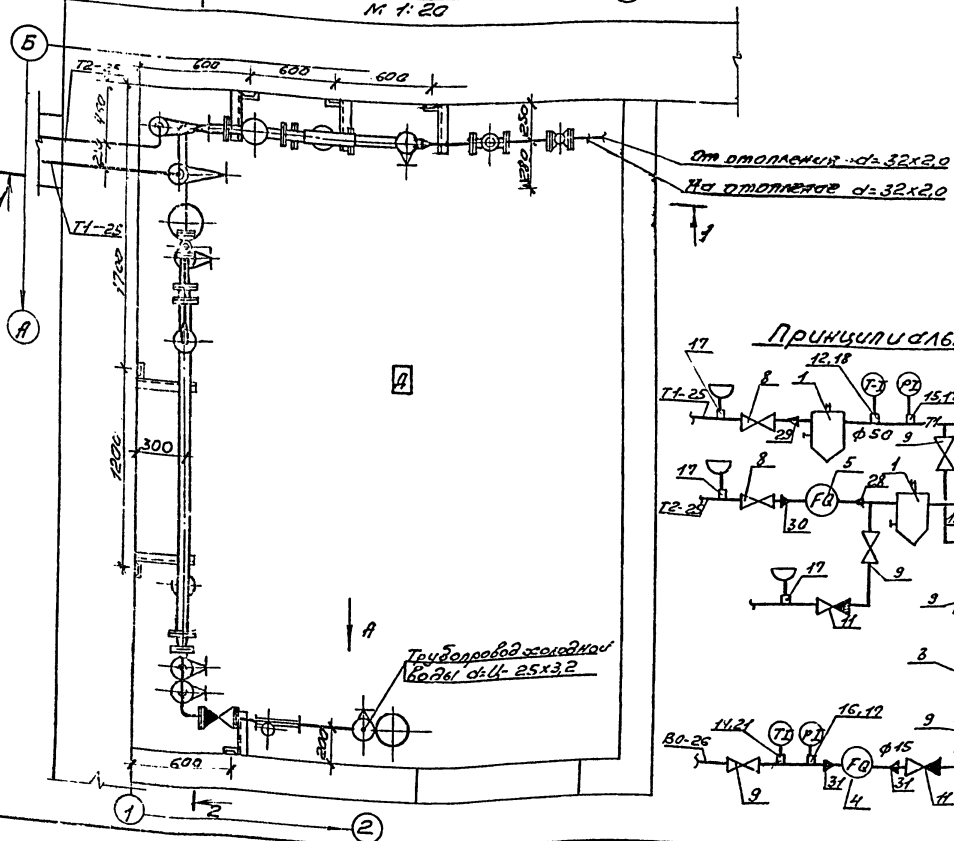 М 1:20
Б
Т2-25
600
600
600
450
250
280
От отопления d=32х2,0
На отопление d=32х2,0
1
Т1-25
1700
А
Д
300
1200
А
Трубопровод холодной
воды d=Ц-25х3,2
200
600
1
2
2
Принципиаль
17
12,18
8
1
TI
PI
Т1-25
29
ф50
9
Т1
17
8
5
1
28
FQ
30
17
9
11
9
3
14,21
16,17
TI
PI
9
В0-26
ф15
FQ
31
31
9
4
11